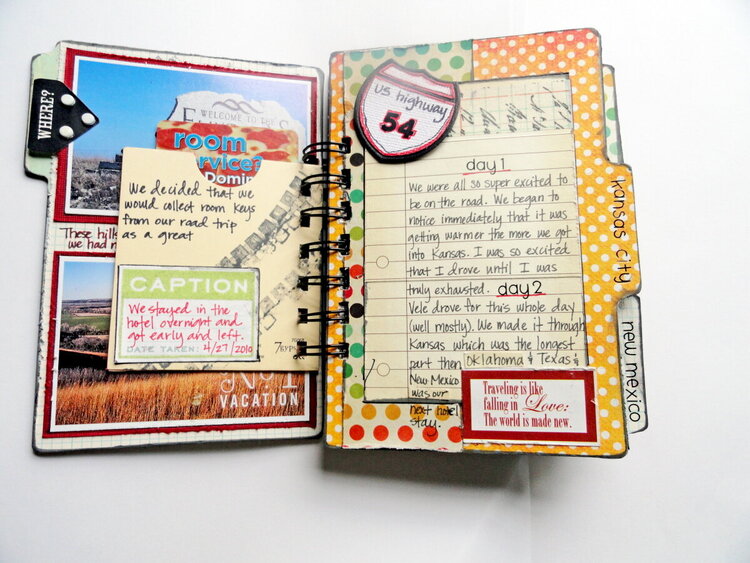 WHERE?
WELCOME TO THE
room
rvice?
Domin
We decided that we
would collect room keys
from our road trip
as a great
These hills
we had n
CAPTION
We stayed in the
hotel overnight and
got early and left.
DATE TAKEN: 4/27/2010
No. 1
VACATION
US highway
54
day 1
We were all so super excited to
be on the road. We began to
notice immediately that it was
getting warmer the more we got
into Kansas. I was so excited
that I drove until I was
truly exhausted. day 2
Vele drove for this whole day
(well mostly). We made it through
Kansas which was the longest
part then Oklahoma & Texas &
New Mexico
was our
next hotel
stay.
Traveling is like
falling in Love:
The world is made new.
kansas city
new mexico